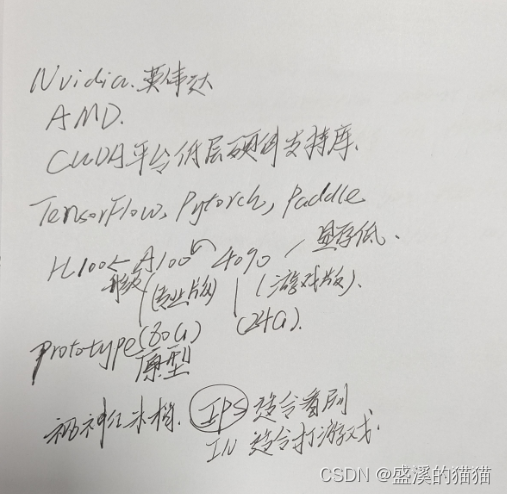 Nvidia.英伟达
AMD.
CUDA平台低层硬件支持库.
TensorFlow, Pytorch, Paddle
H100 A100 4090 显存低.
升级 (专业版) (游戏版).
Prototype (80G) (24G).
原型
IPS 适合看剧
IN 适合打游戏.
CSDN @盛溪的猫猫